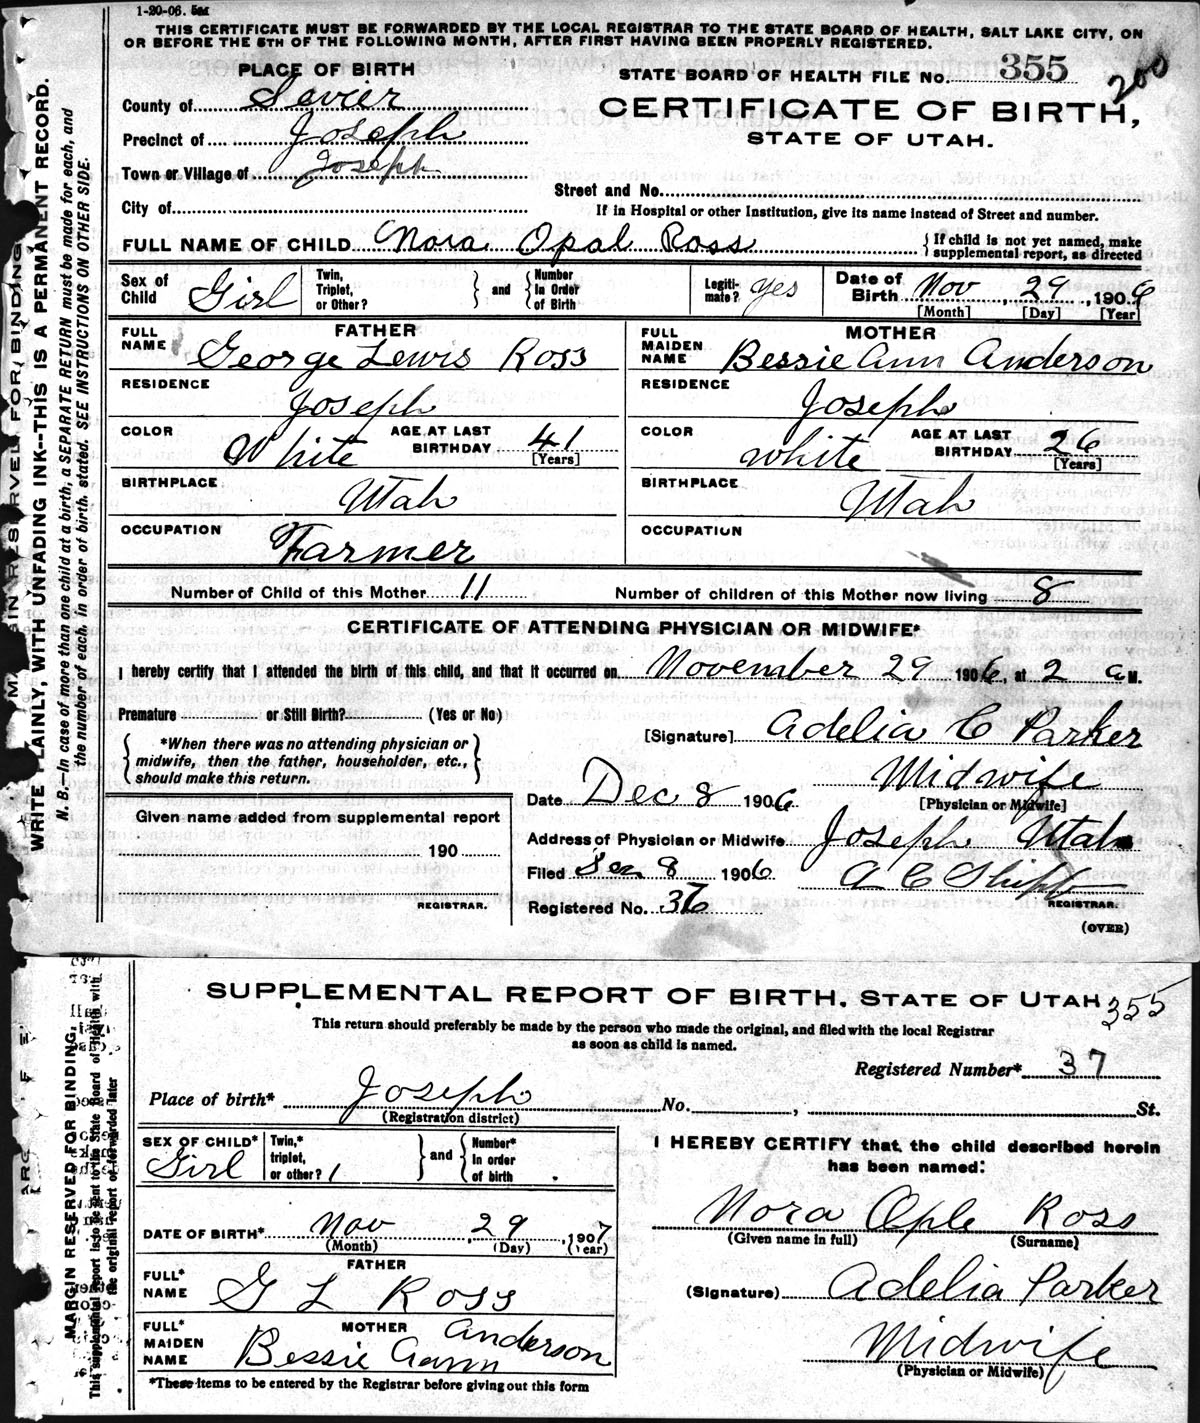 1-20-06. 5M
THIS CERTIFICATE MUST BE FORWARDED BY THE LOCAL REGISTRAR TO THE STATE BOARD OF HEALTH, SALT LAKE CITY, ON
OR BEFORE THE 5TH OF THE FOLLOWING MONTH, AFTER FIRST HAVING BEEN PROPERLY REGISTERED.
PLACE OF BIRTH
STATE BOARD OF HEALTH FILE No. 355
200
County of Sevier
CERTIFICATE OF BIRTH,
Precinct of Joseph
STATE OF UTAH.
Town or Village of Joseph
Street and No.
City of
If in Hospital or other Institution, give its name instead of Street and number.
FULL NAME OF CHILD Nora Opal Ross
{ If child is not yet named, make
supplemental report, as directed
Sex of Child Girl
Twin, Triplet, or Other? } and { Number in Order of Birth
Legitimate? yes
Date of Birth Nov, 29, 1906
[Month] [Day] [Year]
FATHER
MOTHER
FULL NAME George Lewis Ross
FULL MAIDEN NAME Bessie Ann Anderson
RESIDENCE Joseph
RESIDENCE Joseph
COLOR White AGE AT LAST BIRTHDAY 41 [Years]
COLOR white AGE AT LAST BIRTHDAY 26 [Years]
BIRTHPLACE Utah
BIRTHPLACE Utah
OCCUPATION Farmer
OCCUPATION
Number of Child of this Mother 11 Number of children of this Mother now living 8
CERTIFICATE OF ATTENDING PHYSICIAN OR MIDWIFE*
I hereby certify that I attended the birth of this child, and that it occurred on November 29 1906, at 2 a M.
Premature or Still Birth? (Yes or No)
[Signature] Adelia C Parker
{ *When there was no attending physician or
midwife, then the father, householder, etc.,
should make this return. }
Midwife
Date Dec 8 1906 [Physician or Midwife]
Given name added from supplemental report
Address of Physician or Midwife Joseph Utah
190
Filed Dec 8 1906 A C Shipp
REGISTRAR.
REGISTRAR.
Registered No. 37
(OVER)
MARGIN RESERVED FOR BINDING
WRITE PLAINLY, WITH UNFADING INK--THIS IS A PERMANENT RECORD.
N. B.--In case of more than one child at a birth, a SEPARATE RETURN must be made for each, and
the number of each, in order of birth, stated. SEE INSTRUCTIONS ON OTHER SIDE.
SUPPLEMENTAL REPORT OF BIRTH, STATE OF UTAH 355
This return should preferably be made by the person who made the original, and filed with the local Registrar
as soon as child is named.
Registered Number* 37
Place of birth* Joseph No. , St.
(Registration district)
SEX OF CHILD* Girl
Twin,* triplet, or other? 1 } and { Number* in order of birth
I HEREBY CERTIFY that the child described herein
has been named:
Nora Ople Ross
(Given name in full) (Surname)
DATE OF BIRTH* Nov, 29, 1907
(Month) (Day) (Year)
FATHER
FULL* NAME G L Ross
(Signature) Adelia Parker
MOTHER
FULL* MAIDEN NAME Bessie Aann Anderson
Midwife
(Physician or Midwife)
*These items to be entered by the Registrar before giving out this form
MARGIN RESERVED FOR BINDING.
This supplemental report is to be sent to the State Board of Health with
the original report or forwarded later